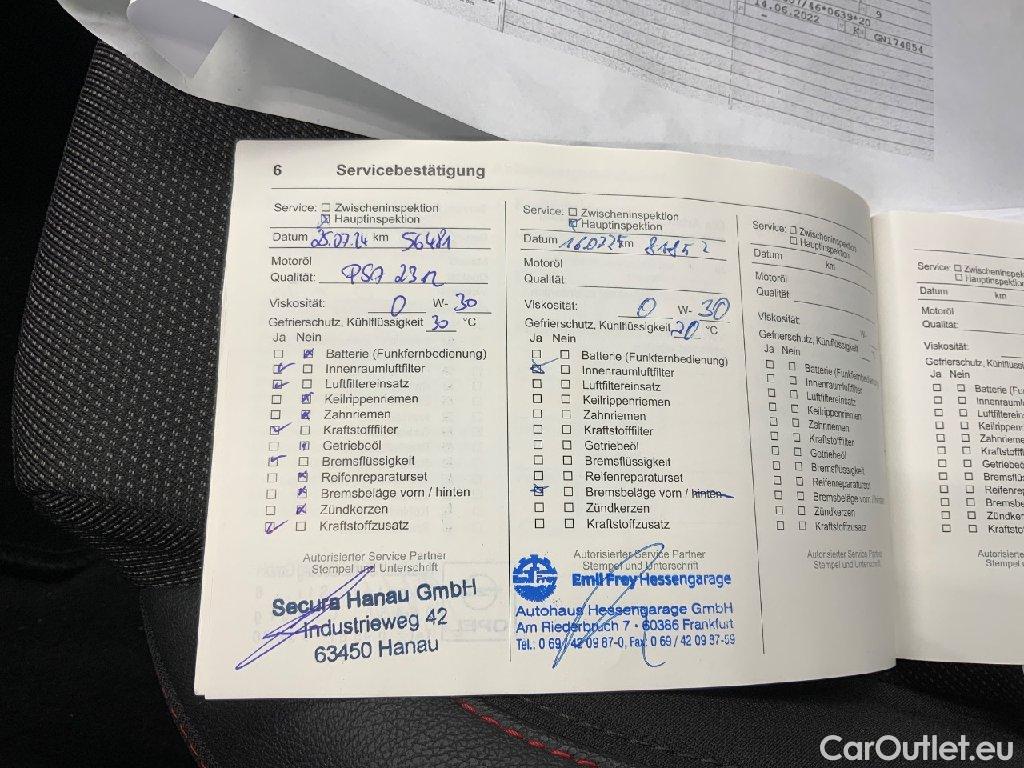 14.06.2022
9
K
GN174854
6 Servicebestätigung
Service: Zwischeninspektion
Hauptinspektion
Datum 25.07.24 km 56481
Motoröl
Qualität: PSA 2312
Viskosität: 0 W- 30
Gefrierschutz, Kühlflüssigkeit 30 °C
Ja Nein
Batterie (Funkfernbedienung)
Innenraumluftfilter
Luftfiltereinsatz
Keilrippenriemen
Zahnriemen
Kraftstofffilter
Getriebeöl
Bremsflüssigkeit
Reifenreparaturset
Bremsbeläge vorn / hinten
Zündkerzen
Kraftstoffzusatz
Autorisierter Service Partner
Stempel und Unterschrift
Secura Hanau GmbH
Industrieweg 42
63450 Hanau
Service: Zwischeninspektion
Hauptinspektion
Datum 16.07.25 km 81852
Motoröl
Qualität:
Viskosität: 0 W- 30
Gefrierschutz, Kühlflüssigkeit 20 °C
Ja Nein
Batterie (Funkfernbedienung)
Innenraumluftfilter
Luftfiltereinsatz
Keilrippenriemen
Zahnriemen
Kraftstofffilter
Getriebeöl
Bremsflüssigkeit
Reifenreparaturset
Bremsbeläge vorn / hinten
Zündkerzen
Kraftstoffzusatz
Autorisierter Service Partner
Stempel und Unterschrift
Emil Frey Hessengarage
Autohaus Hessengarage GmbH
Am Riederbruch 7 · 60386 Frankfurt
Service: Zwischeninspektion
Hauptinspektion
Datum km
Motoröl
Qualität
Viskosität: W-
Gefrierschutz, Kühlflüssigkeit
Ja Nein
Batterie (Funkfernbedienung
Innenraumluftfilter
Luftfiltereinsatz
Keilrippenriemen
Zahnriemen
Kraftstofffilter
Getriebeöl
Bremsflüssigkeit
Reifenreparaturset
Bremsbeläge vorn / hinten
Zündkerzen
Kraftstoffzusatz
Autorisierter Service Partner
Stempel und Unterschrift
Service: Zwischeninspekt
Hauptinspektion
Datum km
Motoröl
Qualität:
Viskosität:
Gefrierschutz, Kühlflüssi
Ja Nein
Batterie (Fun
Innenraumluf
Luftfilterein
Keilrippen
Zahnriemen
Kraftstofffi
Getriebeö
Bremsflüs
Reifenrep
Bremsbe
Zündker
Kraftsto
Autorisierter
Stempel
CarOutlet.eu